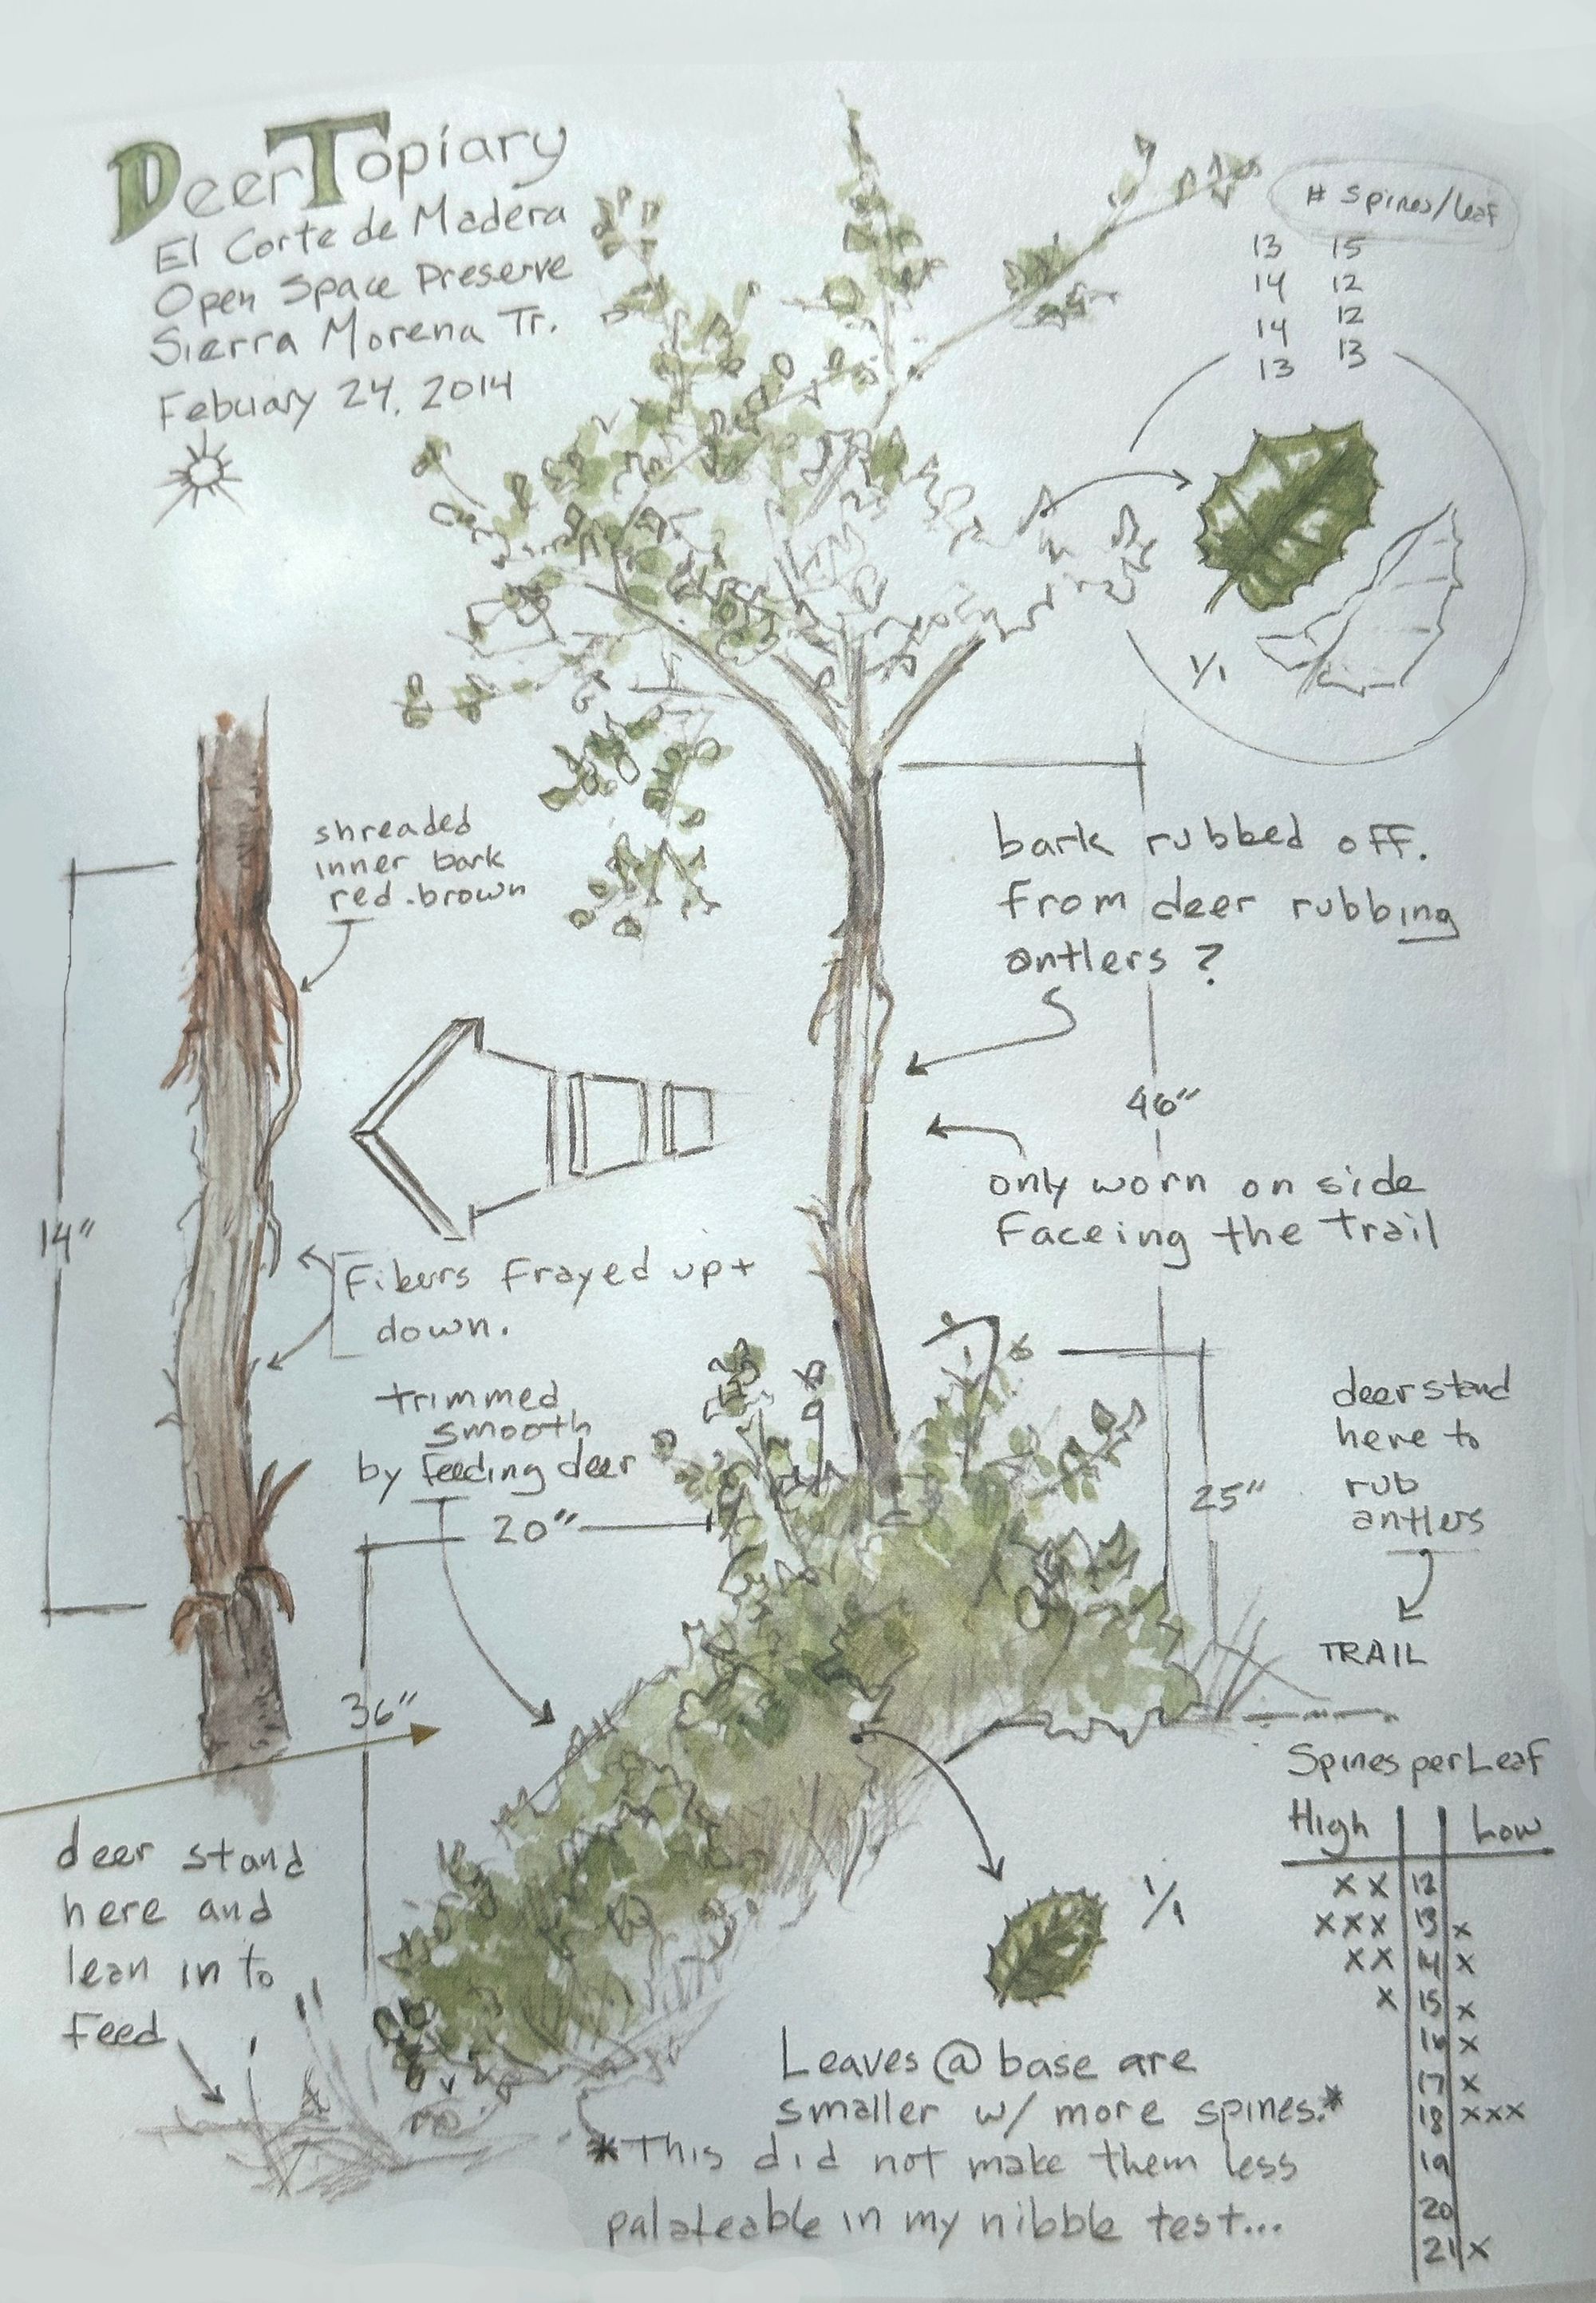 DeerTopiary
El Corte de Madera
Open Space Preserve
Sierra Morena Tr.
Febuary 24, 2014
# spines/leaf
13 15
14 12
14 12
13 13
1/1
shreaded
inner bark
red.brown
bark rubbed off.
from deer rubbing
antlers?
46"
only worn on side
Faceing the trail
14"
Fibers frayed up+
down.
trimmed
smooth
by feeding deer
20"
25"
deer stand
here to
rub
antlers
TRAIL
36"
deer stand
here and
lean in to
feed
1/1
Leaves @ base are
smaller w/ more spines.*
*This did not make them less
palateable in my nibble test...
Spines per Leaf
High Low
xx 12
xxx 13 x
xx 14 x
x 15 x
16 x
17 x
18 xxx
19
20
21 x